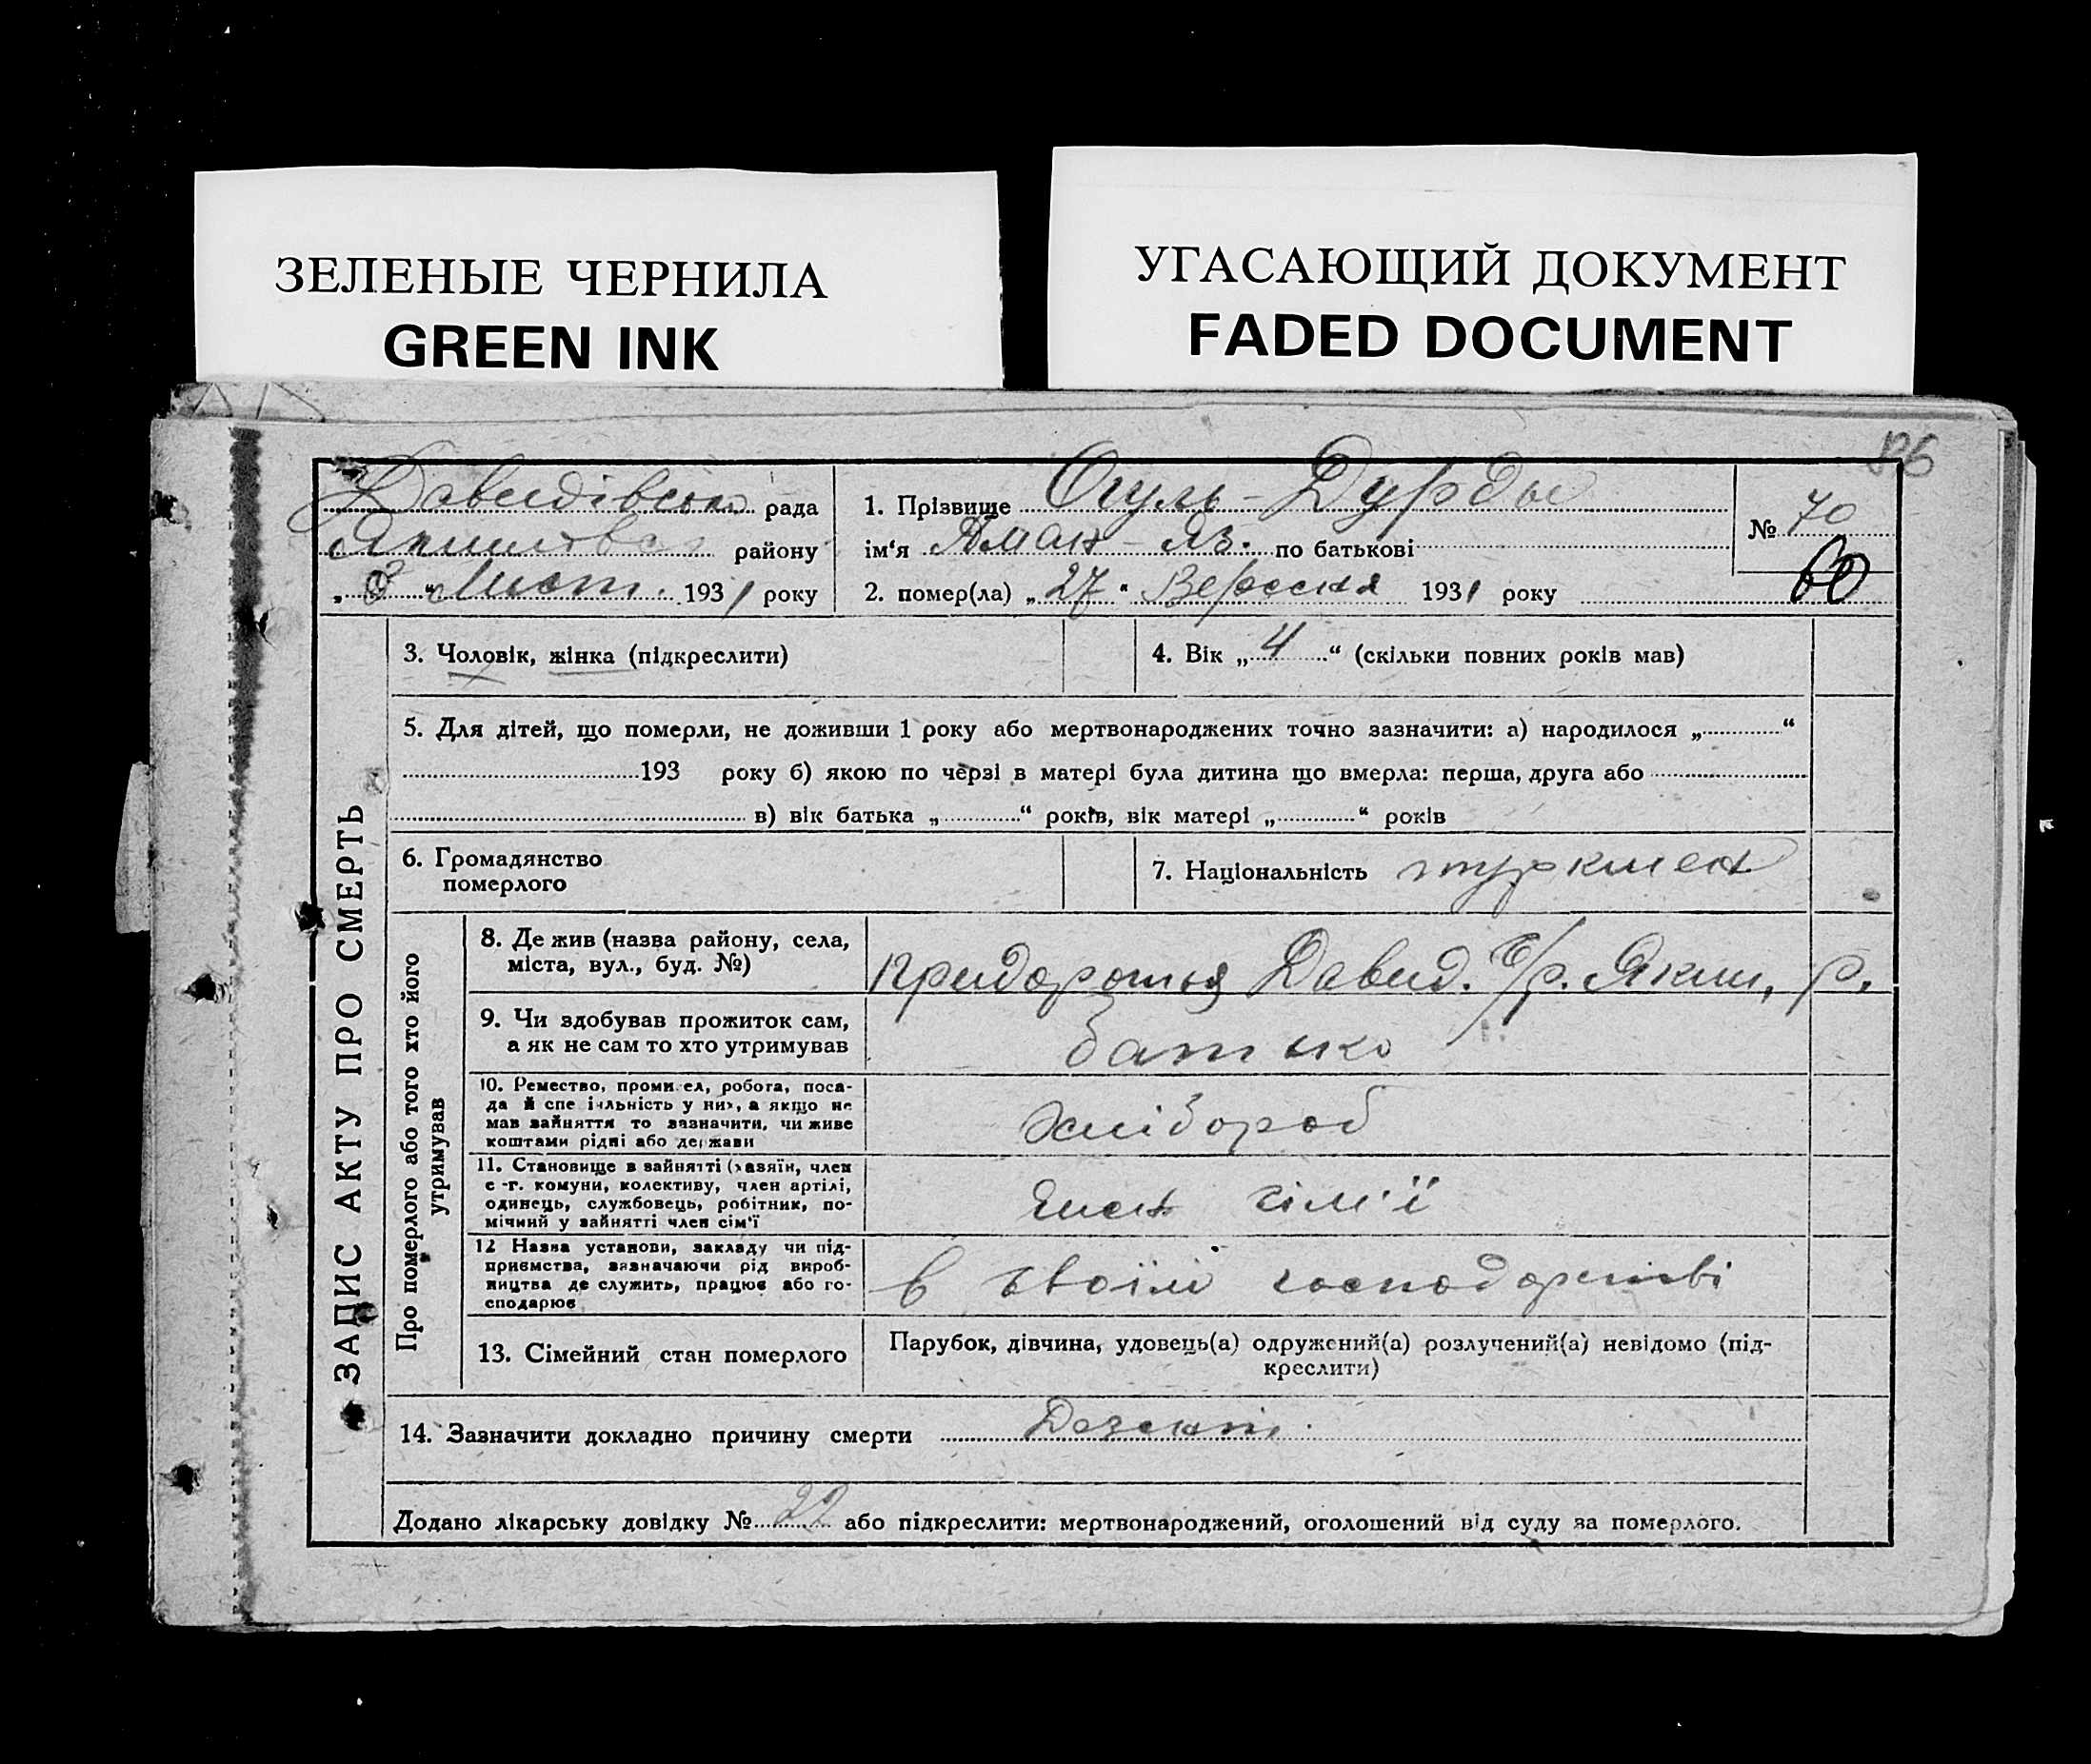 ЗЕЛЕНЫЕ ЧЕРНИЛА
GREEN INK
УГАСАЮЩИЙ ДОКУМЕНТ
FADED DOCUMENT
ЗАПИС АКТУ ПРО СМЕРТЬ
Давидівська рада
району
"3" Лист. 1931 року
1. Прізвище Огуль-Дурды
ім'я Аман-Яз. по батькові
2. помер(ла) „27" Вересня 1931 року
№ 70
60
3. Чоловік, жінка (підкреслити)
4. Вік „4" (скільки повних років мав)
5. Для дітей, що померли, не доживши 1 року або мертвонароджених точно зазначити: а) народилося „ "
193 року б) якою по черзі в матері була дитина що вмерла: перша, друга або
в) вік батька „ " років, вік матері „ " років
6. Громадянство
померлого
7. Національність туркмен
Про померлого або того хто його
утримував
8. Де жив (назва району, села,
міста, вул., буд. №)
Давид. с/р. Яким. р.
9. Чи здобував прожиток сам,
а як не сам то хто утримував
батько
10. Ремество, промисел, робота, поса-
да й спеціяльність у них, а якщо не
мав зайняття то зазначити, чи живе
коштами рідні або держави
хлібороб
11. Становище в зайнятті (хазяїн, член
с.-г. комуни, колективу, член артілі,
одинець, службовець, робітник, по-
мічний у зайнятті член сім'ї
член сім'ї
12 Назва установи, закладу чи під-
приємства, зазначаючи рід вироб-
ництва де служить, працює або го-
сподарює
в своїм господарстві
13. Сімейний стан померлого
Парубок, дівчина, удовець(а) одружений(а) розлучений(а) невідомо (під-
креслити)
14. Зазначити докладно причину смерти
Додано лікарську довідку № 22 або підкреслити: мертвонароджений, оголошений від суду за померлого.